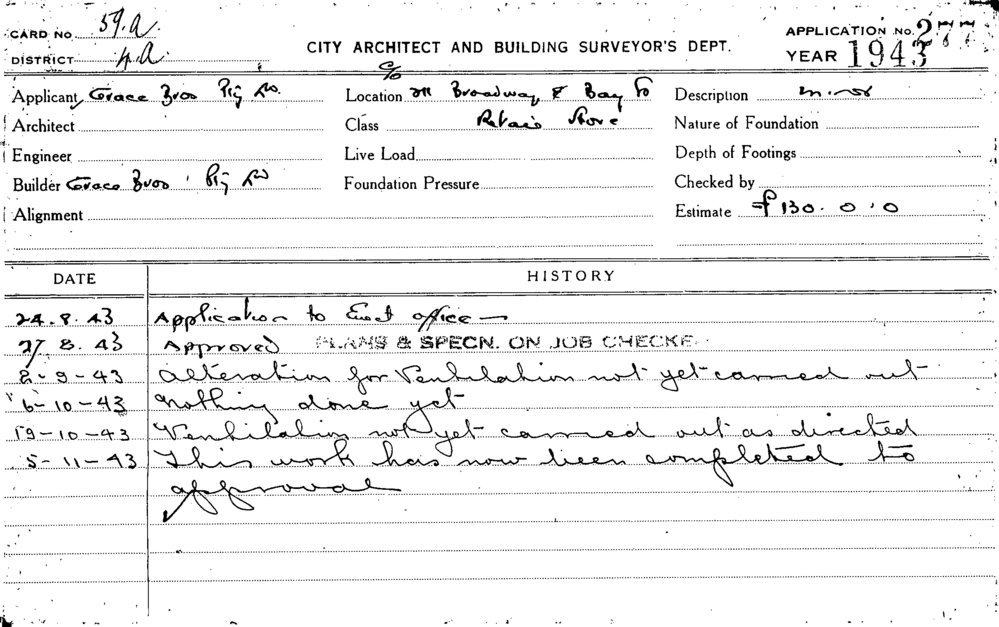 CARD NO 59.A.
DISTRICT 4A
CITY ARCHITECT AND BUILDING SURVEYOR'S DEPT.
APPLICATION No. 277
YEAR 1943
Applicant Grace Bros Pty Ld.
Location c/o Broadway & Bay St
Description minor
Architect
Class Retail Store
Nature of Foundation
Engineer
Live Load
Depth of Footings
Builder Grace Bros Pty Ld
Foundation Pressure
Checked by
Alignment
Estimate £130.0.0
DATE HISTORY
24.8.43 Application to Erect office —
27 8. 43 Approved PLANS & SPECN. ON JOB CHECKE
2-9-43 Alteration for Ventilation not yet carried out
6-10-43 Nothing done yet
19-10-43 Ventilation not yet carried out as directed
5-11-43 This work has now been completed to
approval